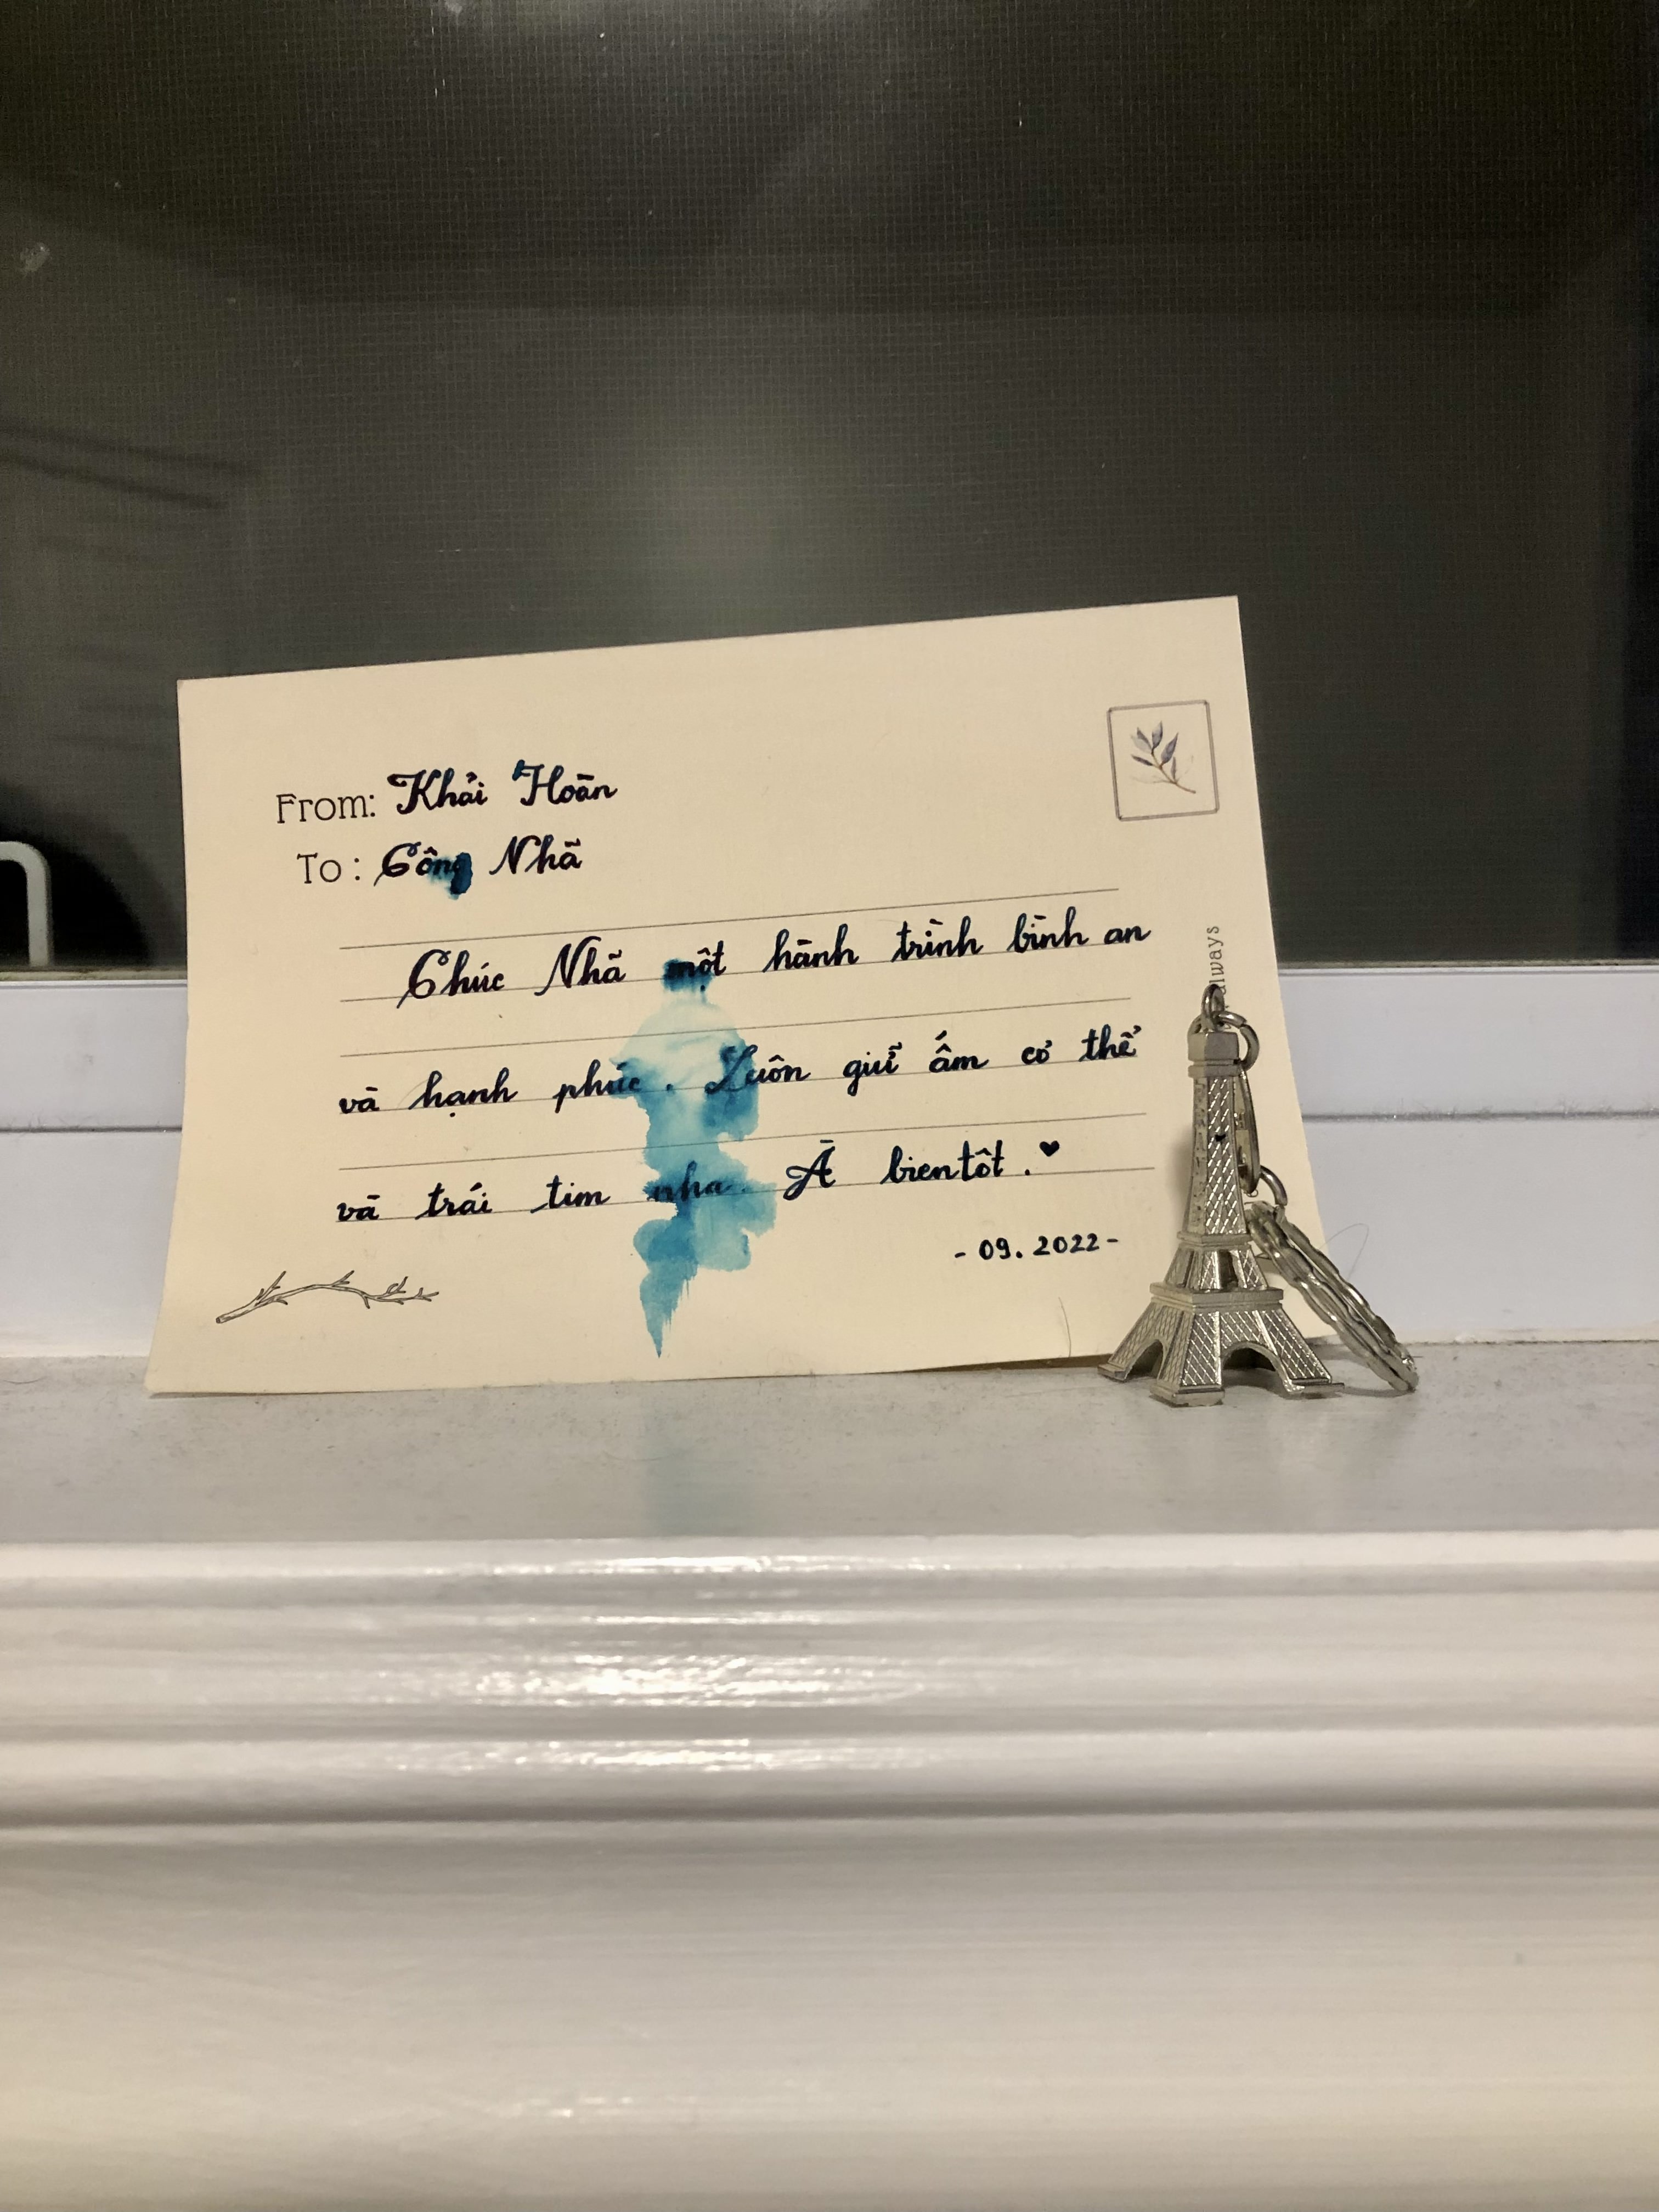 From: Khải Hoàn
To: Công Nhã
Chúc Nhã một hành trình bình an
và hạnh phúc. Luôn giữ ấm cơ thể
và trái tim nha. À bientôt. ♥
- 09. 2022 -
always